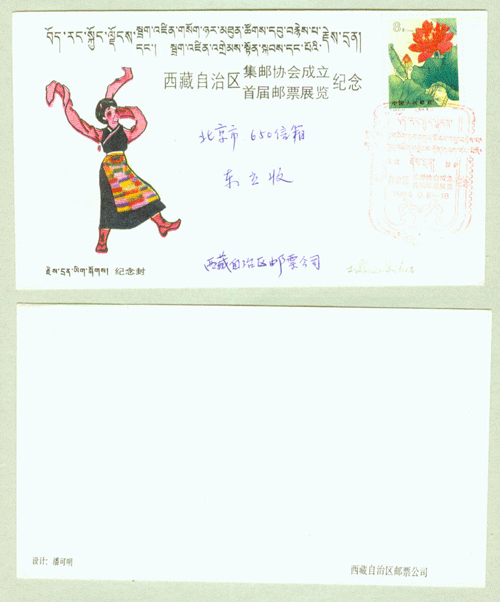 བོད་རང་སྐྱོང་ལྗོངས་ སྦྲག་འཛིན་གསོག་ཉར་མཐུན་ཚོགས་དབུ་བརྙེས་པ་ རྗེས་དྲན།
དང༌། སྦྲག་འཛིན་འགྲེམས་སྟོན་སྐབས་དང་པོའི་
西藏自治区 集邮协会成立 纪念
首届邮票展览
8分
中国人民邮政
北京市 650信箱
东立收
西藏自治区邮票公司
རྗེས་དྲན་ཡིག་སྐོགས། 纪念封
设计：潘可明
西藏自治区邮票公司